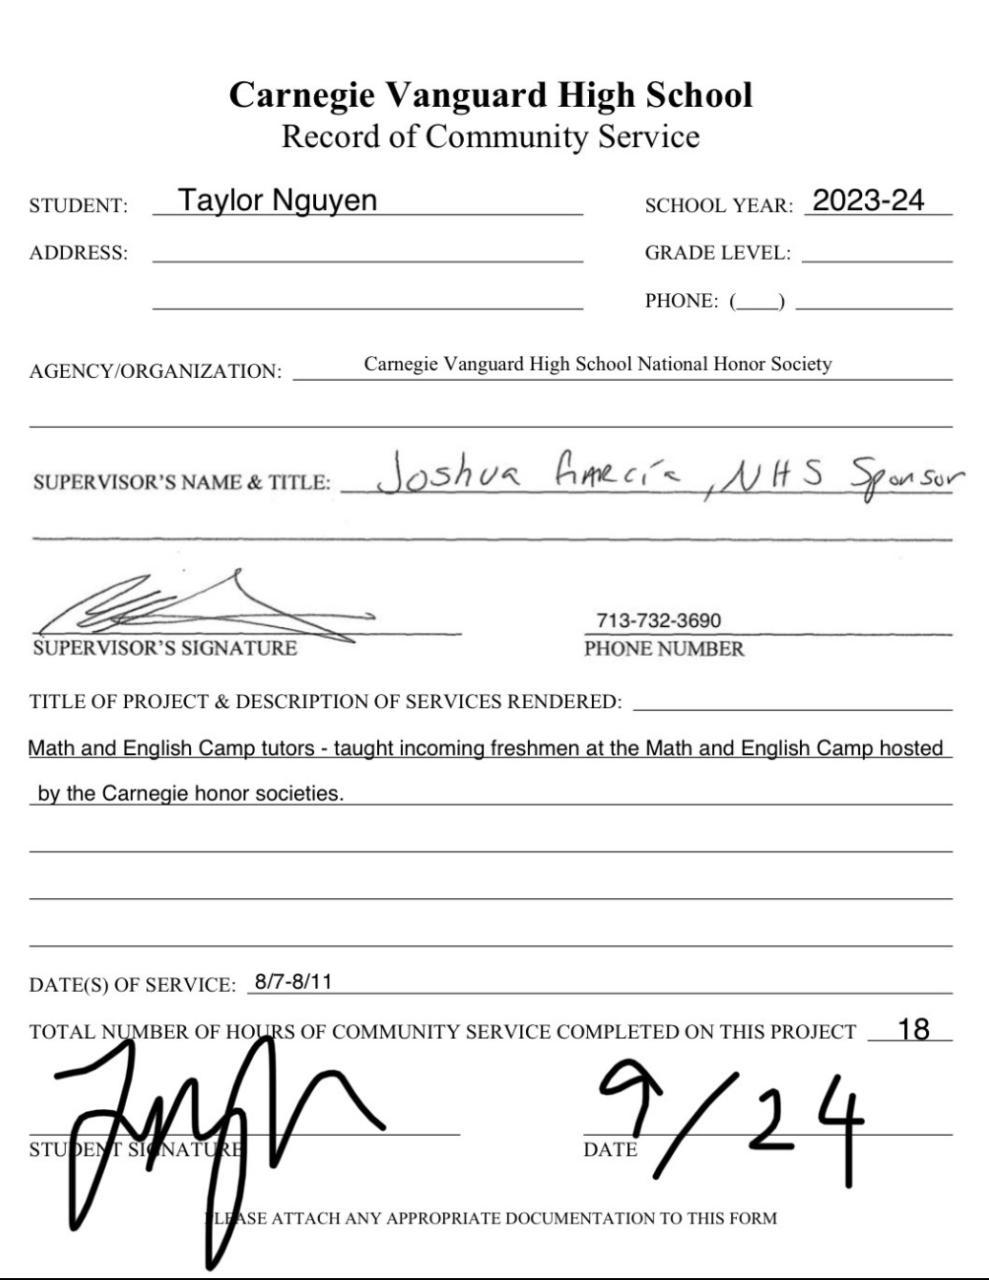 Carnegie Vanguard High School
Record of Community Service
STUDENT: Taylor Nguyen SCHOOL YEAR: 2023-24
ADDRESS: GRADE LEVEL:
PHONE: (___)
AGENCY/ORGANIZATION: Carnegie Vanguard High School National Honor Society
SUPERVISOR'S NAME & TITLE: Joshua García, NHS Sponsor
713-732-3690
SUPERVISOR'S SIGNATURE PHONE NUMBER
TITLE OF PROJECT & DESCRIPTION OF SERVICES RENDERED:
Math and English Camp tutors - taught incoming freshmen at the Math and English Camp hosted
by the Carnegie honor societies.
DATE(S) OF SERVICE: 8/7-8/11
TOTAL NUMBER OF HOURS OF COMMUNITY SERVICE COMPLETED ON THIS PROJECT 18
9/24
STUDENT SIGNATURE DATE
PLEASE ATTACH ANY APPROPRIATE DOCUMENTATION TO THIS FORM